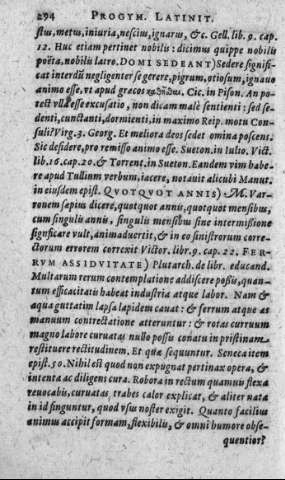 294 PROGYM. LATINIT.
stus, metus, iniuria, nescius, ignarus, &c. Gell. lib. 9. cap.
12. Huc etiam pertinet nobilis: dicimus quippe nobilis
poëta, nobilis latro. DOMI SEDEANT) Sedere signifi-
cat interdũ negligenter se gerere, pigrum, otiosum, ignauo
animo esse, vt apud græcos Cic. in Pison. An po-
test vlla esse excusatio, non dicam malè sentienti: sed se-
denti, cunctanti, dormienti, in maximo Reip. motu Con-
suli? Virg. 3. Georg. Et meliora deos sedet omina poscens.
Sic desidere, pro remisso animo esse. Sueton. in Iulio. Vict.
lib. 16. cap. 20. & Torrent. in Sueton. Eandem vim habe-
re apud Tullium verbum, iacere, notauit alicubi Manut.
in eiusdem epist. QVOTQVOT ANNIS) M. Var-
ronem sæpius dicere, quotquot annis, quotquot mensibus,
cum singulis annis, singulis mensibus sine intermissione
significare vult, animaduertit, & in eo sinistrorum corre-
ctorum errorem correxit Victor. lib. 9. cap. 22. FER-
RVM ASSIDVITATE) Plutarch. de libr. educand.
Multarum rerum contemplatione addiscere possis, quan-
tum efficacitatis habeat industria atque labor. Nam &
aqua guttatim lapsa lapidem cauat: & ferrum atque æs
manuum contrectatione atteruntur: & rotas curruum
magno labore curuatas nullo possis conatu in pristinam
restituere rectitudinem. Et quæ sequuntur. Seneca item
epist. 50. Nihil est quod non expugnat pertinax opera, &
intenta ac diligens cura. Robora in rectum quamuis flexa
reuocabis, curuatas trabes calor explicat, & aliter nata
in id finguntur, quod vsus noster exigit. Quanto facilius
animus accipit formam, flexibilis, & omni humore obse-
quentior?